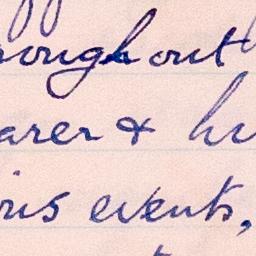 roughout
arer & hu
ous events,